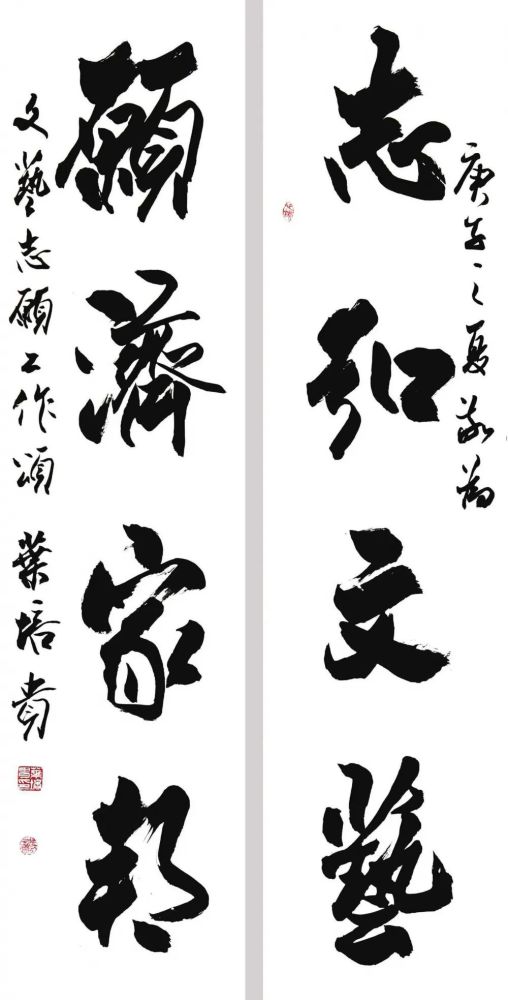 志弘文藝
庚子之夏敬為
願濟家邦
文藝志願工作頌 葉培貴